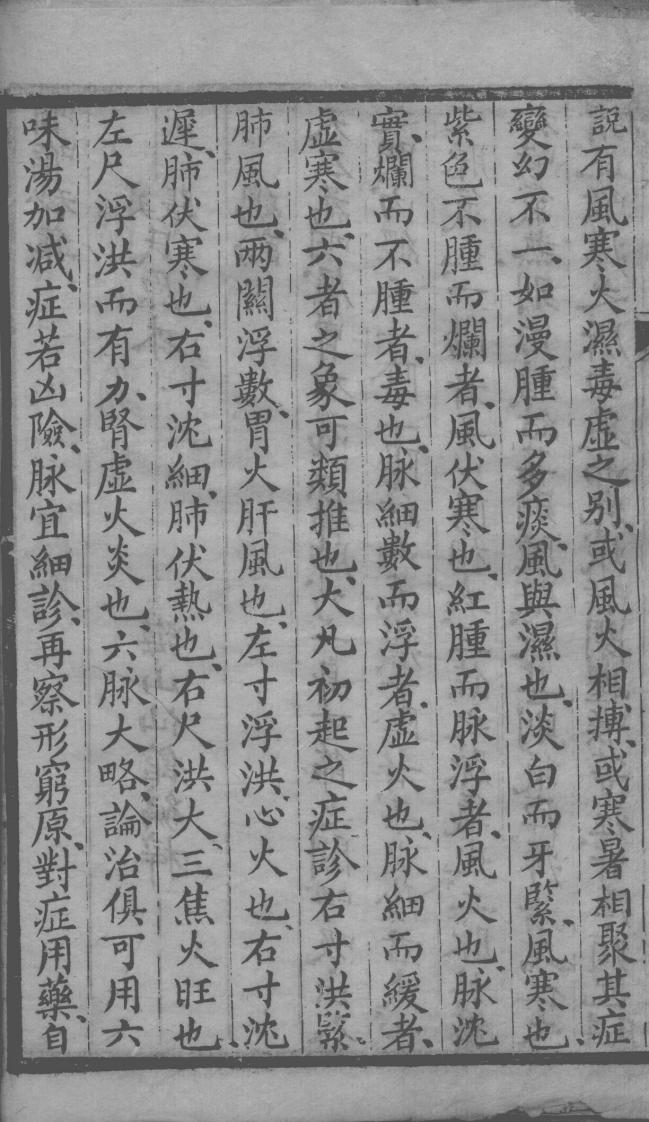 說有風寒火濕毒虛之别、或風火相搏、或寒暑相聚其症
變幻不一、如漫腫而多痰、風與濕也、淡白而牙緊、風寒也、
紫色不腫而爛者、風伏寒也、紅腫而脉浮者、風火也、脉沈
實、爛而不腫者、毒也、脉細數而浮者、虛火也、脉細而緩者、
虛寒也、六者之象可類推也、大凡初起之症診右寸洪緊、
肺風也、兩關浮數、胃火肝風也、左寸浮洪、心火也、右寸沈
遲、肺伏寒也、右寸沈細、肺伏熱也、右尺洪大、三焦火旺也、
左尺浮洪而有力、腎虛火炎也、六脉大略、論治俱可用六
味湯加减、症若凶險、脉宜細診、再察形窮原、對症用藥、自